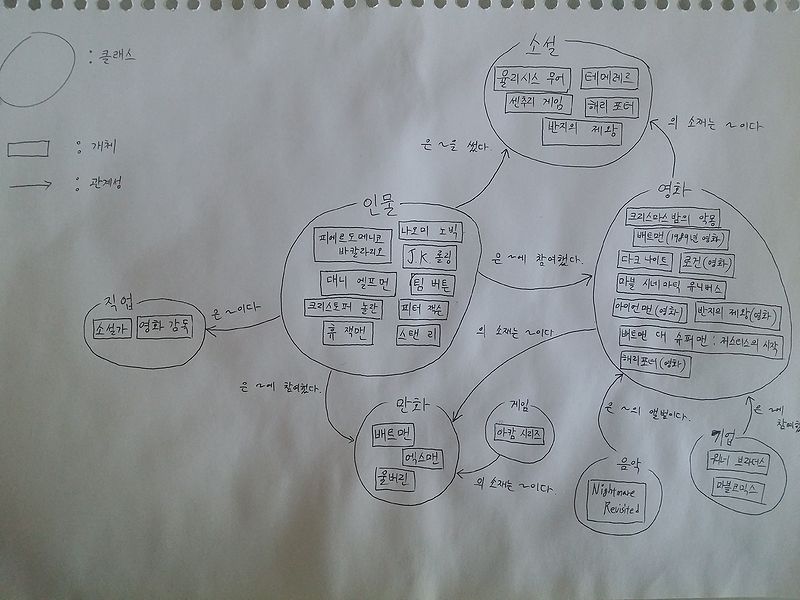 : 클래스
: 개체
: 관계성
소설
율리시스 무어
테메레르
센추리 게임
해리 포터
반지의 제왕
은 ~을 썼다.
의 소재는 ~이다
인물
피에르도메니코
바칼라리오
나오미 노빅
JK 롤링
대니 엘프먼
팀 버튼
크리스토퍼 놀란
피터 잭슨
휴 잭맨
스탠 리
은 ~에 참여했다.
영화
크리스마스 밤의 악몽
배트맨(1989년 영화)
다크 나이트
로건(영화)
마블 시네마틱 유니버스
아이언맨(영화)
반지의 제왕(영화)
배트맨 대 슈퍼맨 : 저스티스의 시작
해리포터(영화)
직업
소설가
영화 감독
은 ~이다
의 소재는 ~이다
은 ~에 참여했다.
만화
배트맨
엑스맨
울버린
게임
아캄 시리즈
의 소재는 ~이다.
은 ~의 앨범이다.
음악
Nightmare
Revisited
은 ~에
참여했
기업
워너 브라더스
마블코믹스